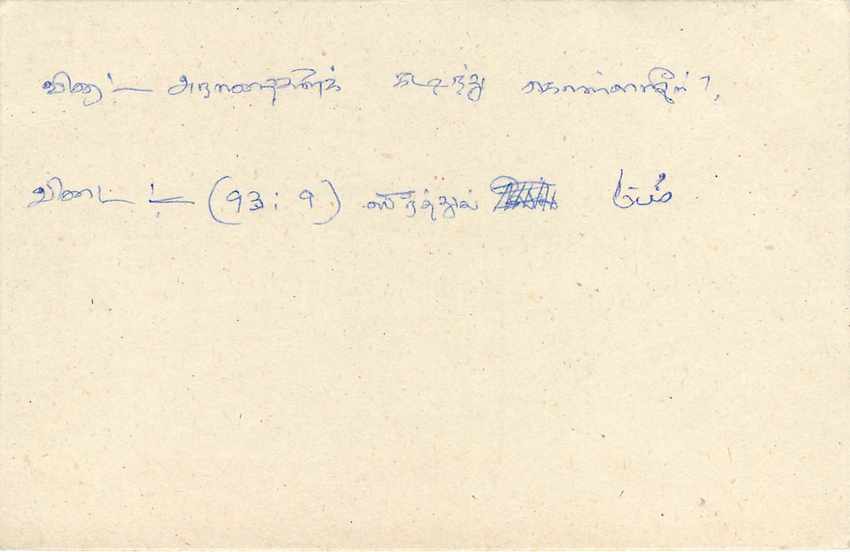 வினா :- அநாதைகளைக் கடிந்து கொள்ளாதீர் ?
விடை :- (93 : 9) ஸூரத்துல்